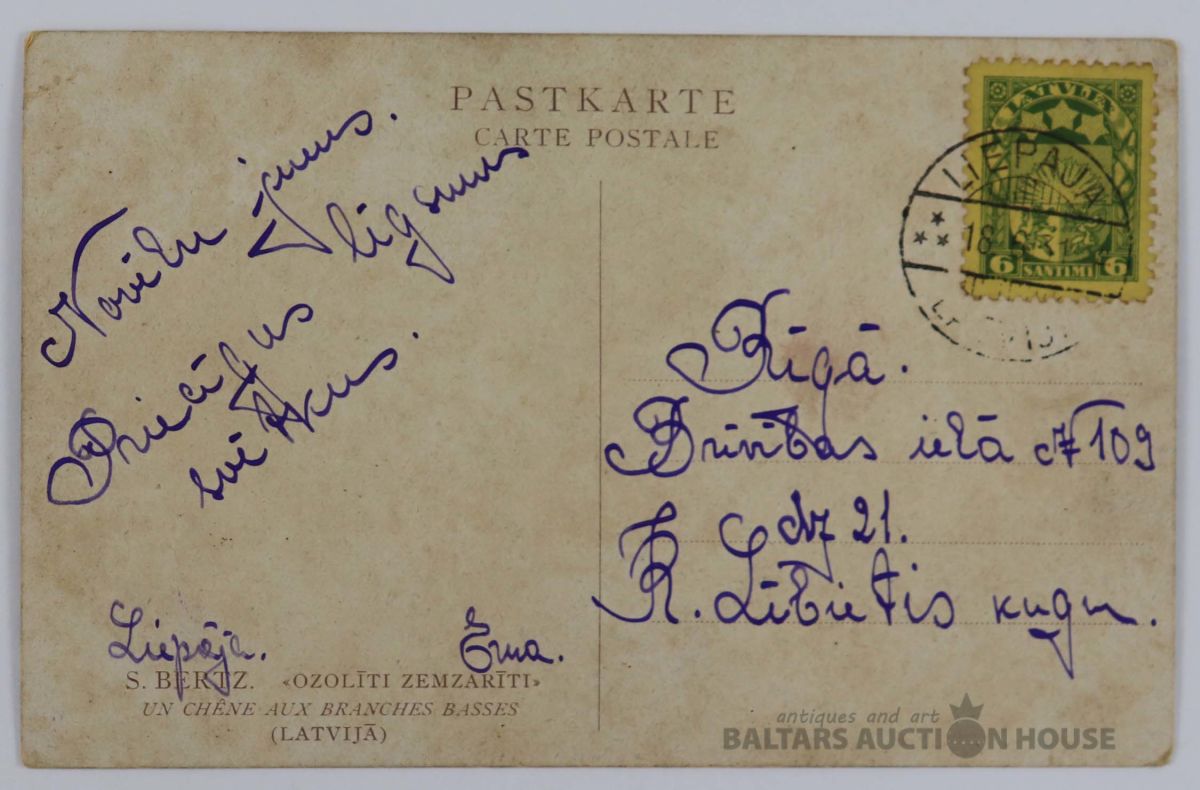 PASTKARTE
CARTE POSTALE
LATVIJA
LIEPAJA
18. 6.
6 SANTIMI 6
Novēlu jums.
Priecīgus līgsmus
svētkus.
Liepāja. Erna.
Rīgā.
Brīvības ielā № 109
dz 21.
K. Lībietis kugu.
S. BERTZ. «OZOLĪTI ZEMZARĪTI»
UN CHÊNE AUX BRANCHES BASSES
(LATVIJĀ)
antiques and art
BALTARS AUCTION HOUSE